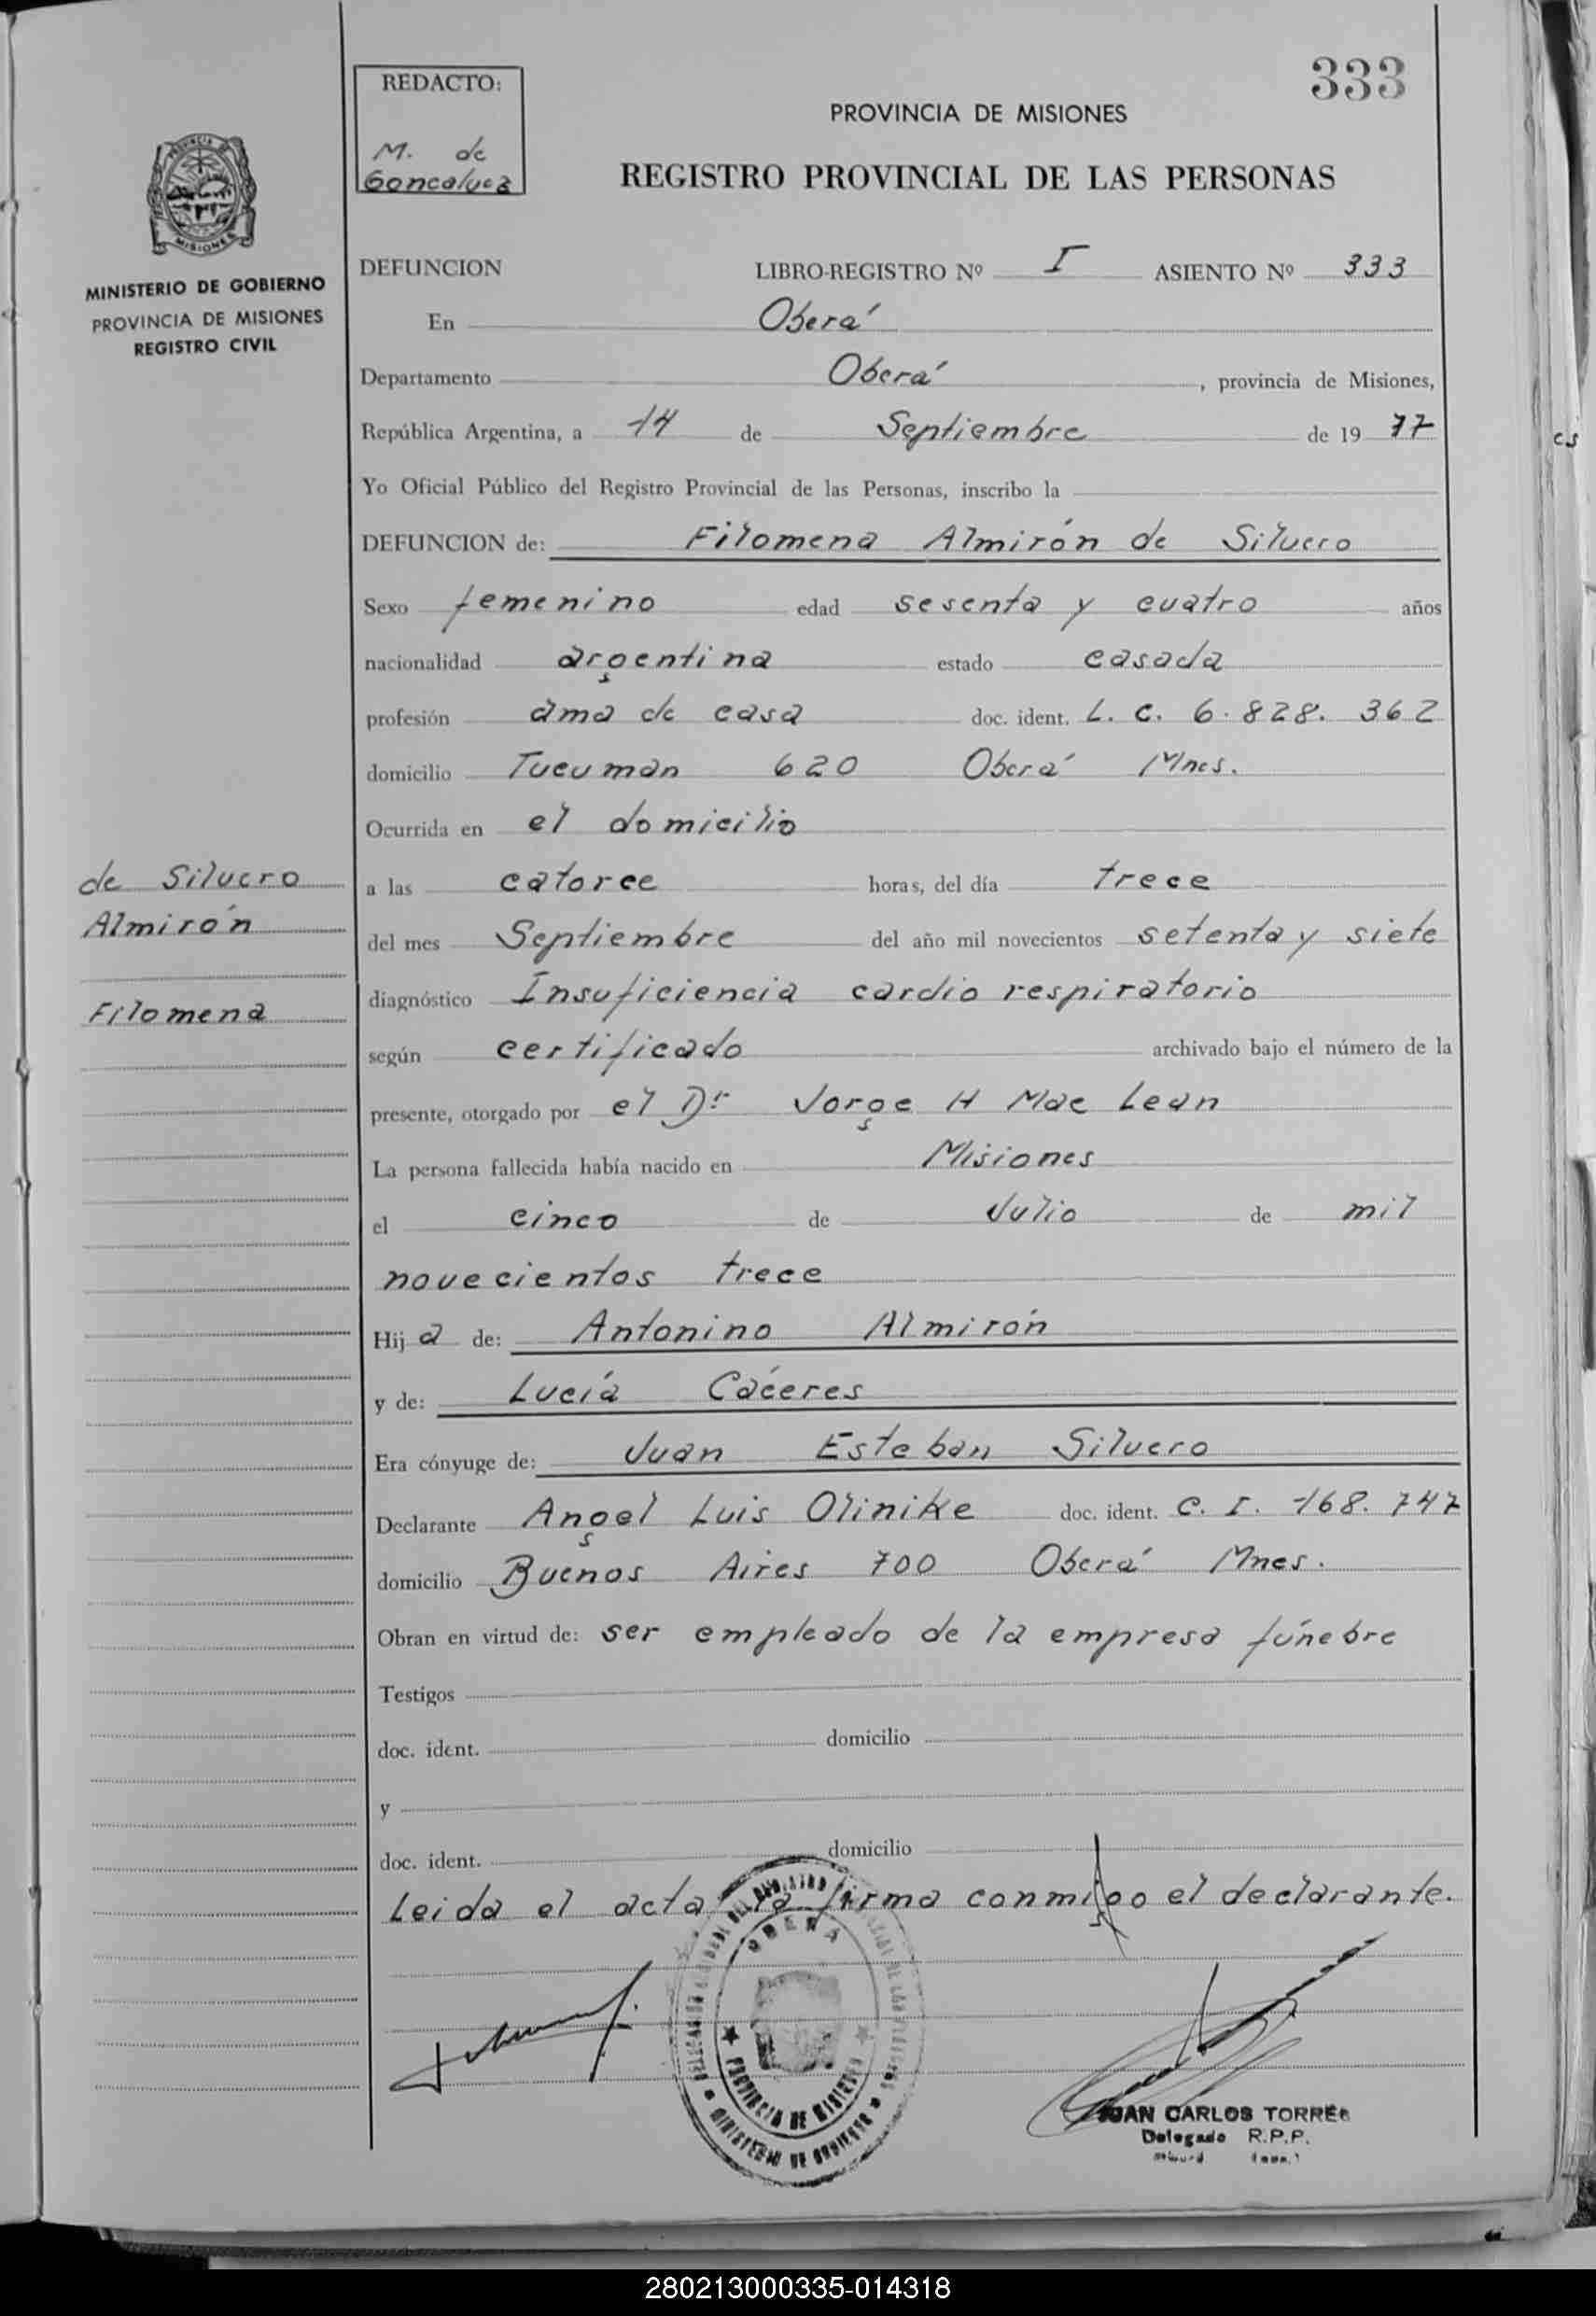 333
REDACTO:
M. de
Goncalvez
PROVINCIA DE MISIONES
REGISTRO PROVINCIAL DE LAS PERSONAS
MISIONES
MINISTERIO DE GOBIERNO
PROVINCIA DE MISIONES
REGISTRO CIVIL
DEFUNCION LIBRO-REGISTRO Nº I ASIENTO Nº 333
En Oberá
Departamento Oberá, provincia de Misiones,
República Argentina, a 14 de Septiembre de 19 77
Yo Oficial Público del Registro Provincial de las Personas, inscribo la
DEFUNCION de: Filomena Almirón de Silvero
Sexo femenino edad sesenta y cuatro años
nacionalidad argentina estado casada
profesión ama de casa doc. ident. L. C. 6.828.362
domicilio Tucuman 620 Oberá Mnes.
Ocurrida en el domicilio
de Silvero
Almirón
Filomena
a las catorce horas, del día trece
del mes Septiembre del año mil novecientos setenta y siete
diagnóstico Insuficiencia cardio respiratorio
según certificado archivado bajo el número de la
presente, otorgado por el Dr Jorge H Mac Lean
La persona fallecida había nacido en Misiones
el cinco de Julio de mil
novecientos trece
Hija de: Antonino Almirón
y de: Lucía Cáceres
Era cónyuge de: Juan Esteban Silvero
Declarante Angel Luis Olinike doc. ident. C. I. 168.747
domicilio Buenos Aires 700 Oberá Mnes.
Obran en virtud de: ser empleado de la empresa fúnebre
Testigos
doc. ident. domicilio
y
doc. ident. domicilio
Leida el acta la firma conmigo el declarante.
OBERA
PROVINCIA DE MISIONES
MINISTERIO DE GOBIERNO
JUAN CARLOS TORRES
Delegado R.P.P.
280213000335-014318